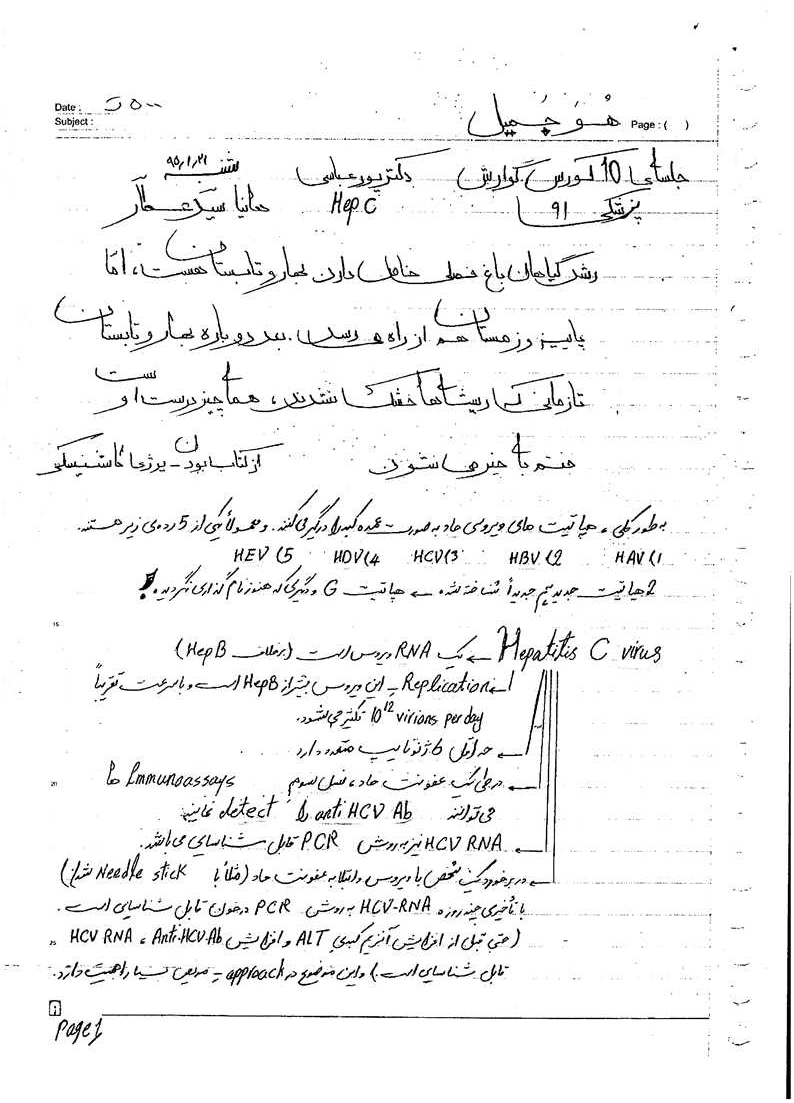 هُوَ جَمیل
Date :
Page : ( )
Subject :
جلسه‌ی 10 کورس گوارش دکتر پورعباسی شنبه ۹۵/۱/۲۱
پزشکی 91 Hep C هانیا سیدعطار
رشد گیاهان باغ فصلی خاص دارن بهار و تابستان هست، امّا
پاییز و زمستان هم از راه می‌رسن. بعد دوباره بهار و تابستان
تا زمانی که ریشه‌ها خشک نشدند، همه چیز درست است و
ختم به خیر می‌شود از کتاب بودن - یرژی کاشینسکی
به طور کلی، هپاتیت های ویروسی حاد به صورت عمده کبد را درگیر می‌کنند. و معمولاً یکی از 5 رده‌ی زیر هستند.
1) HAV 2) HBV 3) HCV 4) HDV 5) HEV
2 هپاتیت جدید هم جدیداً شناخته شده ← هپاتیت G و دیگری که هنوز نام گذاری نگردیده!
Hepatitis C virus ← یک RNA ویروس است (برخلاف HepB)
Replication - این ویروس بیشتر از HepB است و با سرعت تقریباً
10^12 virions per day تکثیر می‌شود.
حداقل 6 ژنوتایپ متعدد دارد
در طی یک عفونت حاد، نسل سوم Immunoassays ها
می‌توانند anti HCV Ab را detect نمایند.
HCV RNA نیز به روش PCR قابل شناسایی می‌باشد.
در برخورد یک شخص با ویروس و ابتلا به عفونت حاد (مثلاً با Needle stick شدن)
با تأخیری چند روزه HCV-RNA به روش PCR در خون قابل شناسایی است.
(حتی قبل از افزایش آنزیم کبدی ALT و افزایش Anti-HCV Ab، HCV RNA
قابل شناسایی است.) و این موضوع در approach - مریض بسیار اهمیت دارد.
Page 1